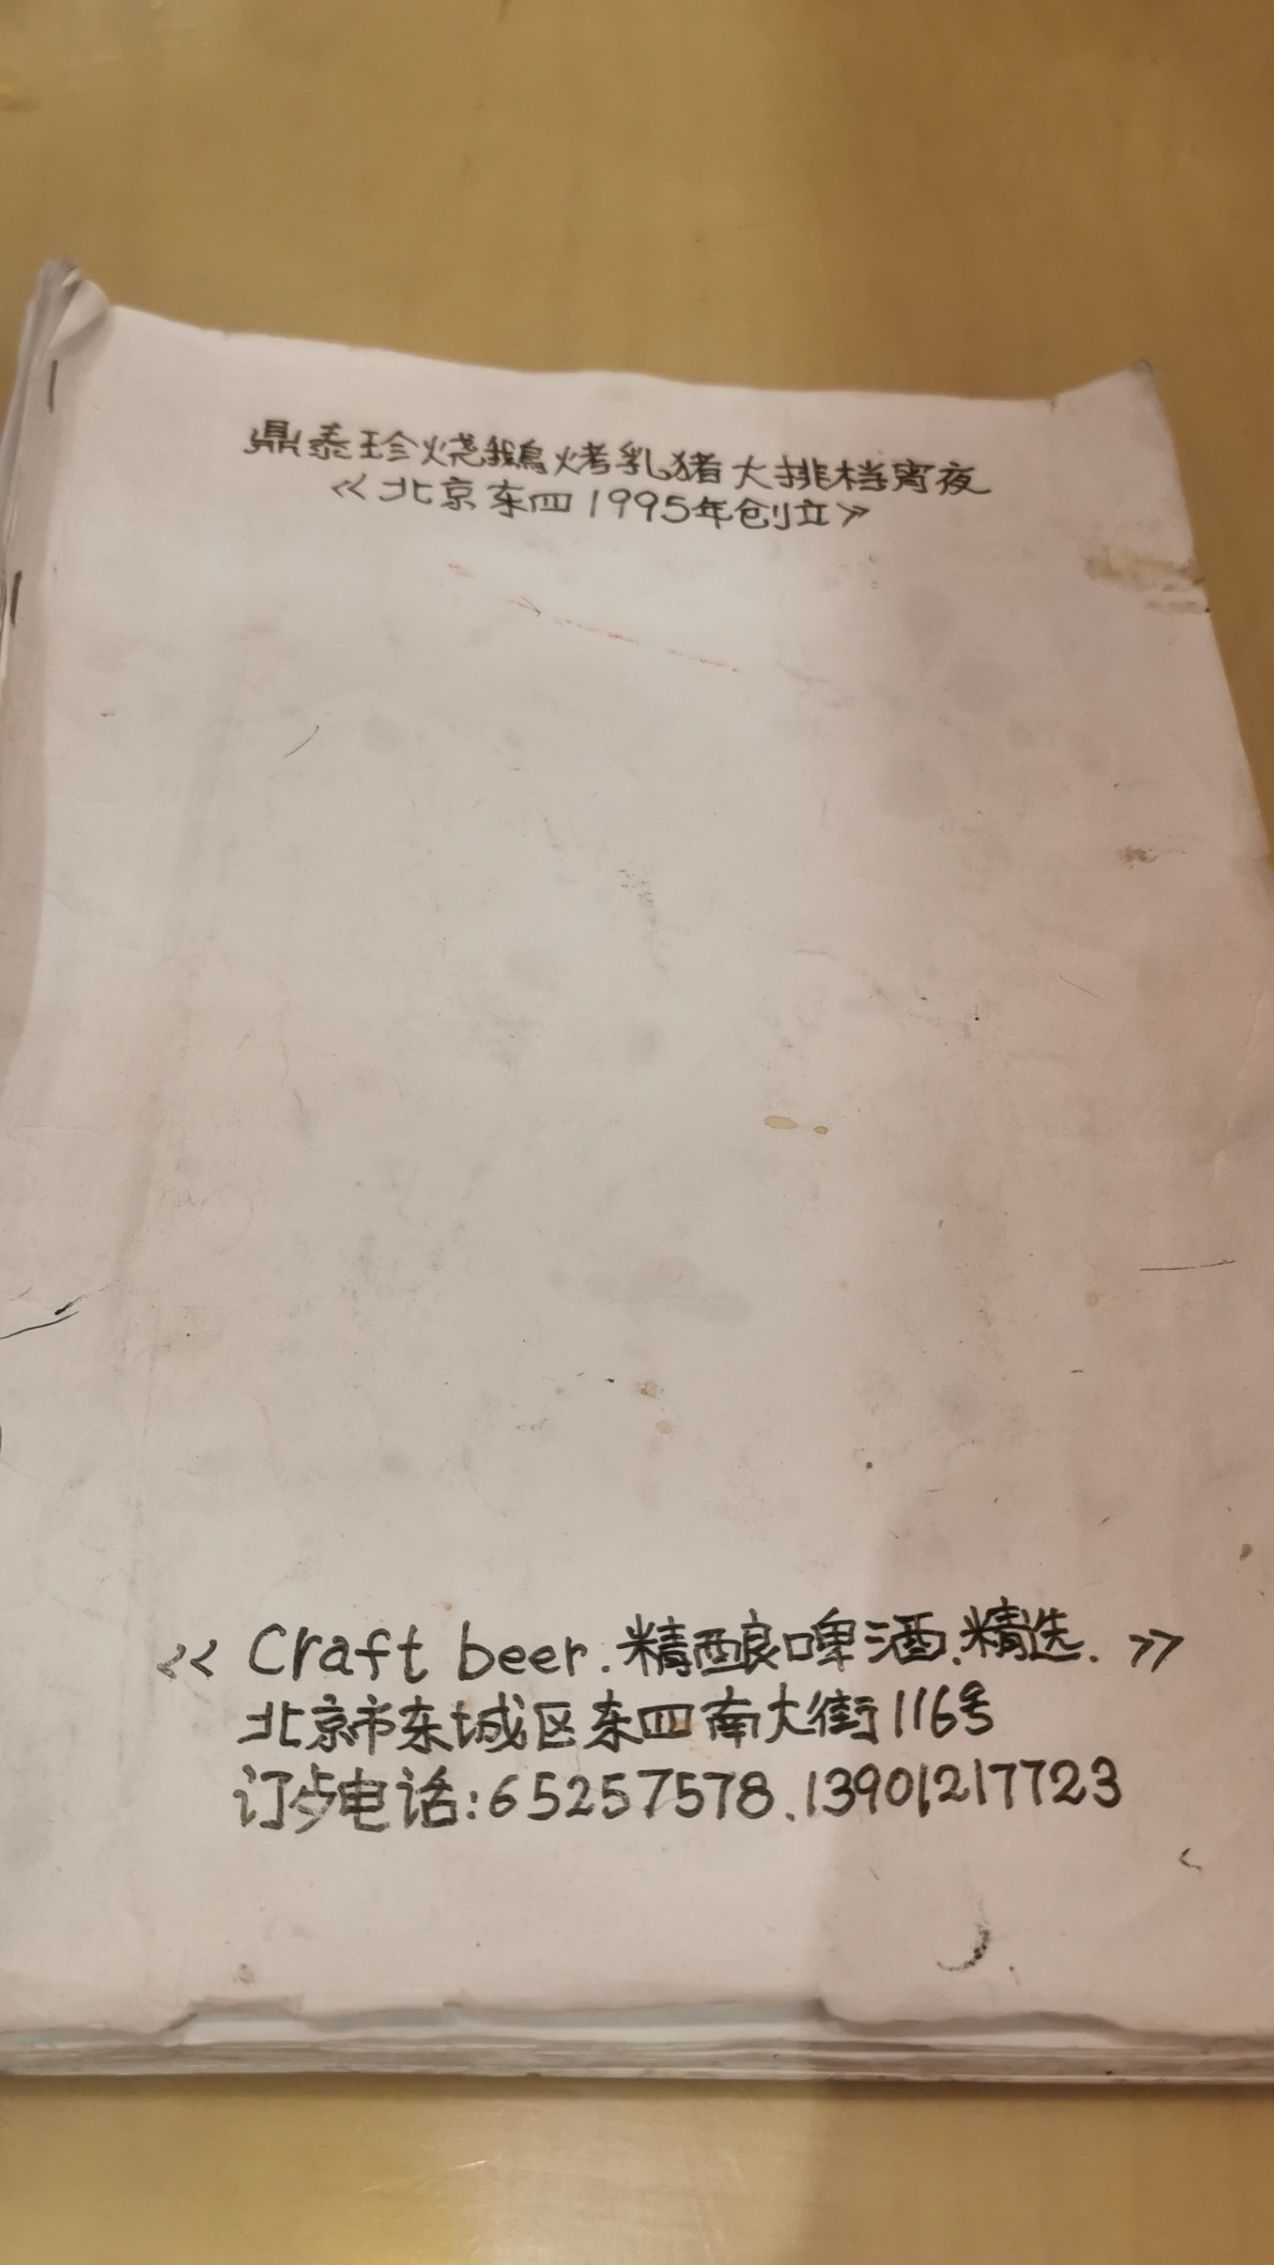 鼎泰珍烧鵝烤乳猪大排档宵夜
≪北京东四1995年创立≫
≪ Craft beer.精酿啤酒.精选. ≫
北京市东城区东四南大街116号
订歺电话:65257578、13901217723